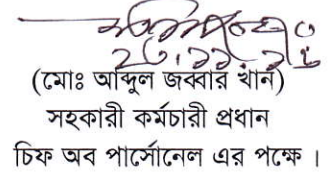 (মোঃ আব্দুল জব্বার খান)
সহকারী কর্মচারী প্রধান
চিফ অব পার্সোনেল এর পক্ষে ।